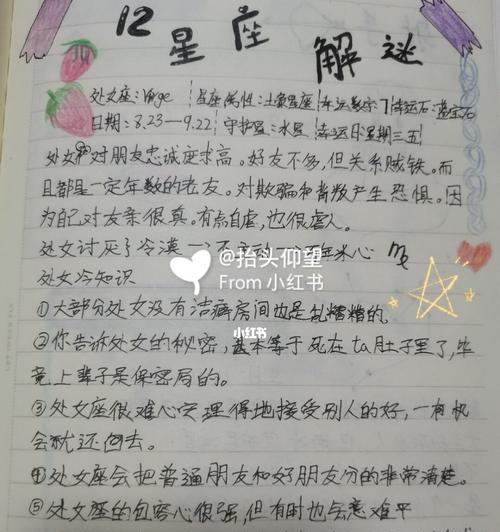 12星座解谜
处女座：Virge 星座属性：土象星座 幸运数字7 幸运石：蓝宝石
日期：8.23—9.22 守护星：水星 幸运日：星期三五
处女 对朋友忠诚度求高。好友不多，但关系贼铁。而
且都是一定年数的老友。对欺骗和背叛产生恐惧。因
为自己对友亲很真。有点自虐，也很虐人。
处女讨厌了冷漠一
@抬头仰望
From 小红书
处女冷知识
①大部分处女没有洁癖房间也是乱糟糟的
小红书
②你告诉处女的秘密，基本等于死在ta肚子里了，毕
竟上辈子是保密局的。
③处女座很难心安理得地接受别人的好，一有机
会就还回去。
④处女座会把普通朋友和好朋友分的非常清楚。
⑤处女座的包容心很强，但有时也会意难平